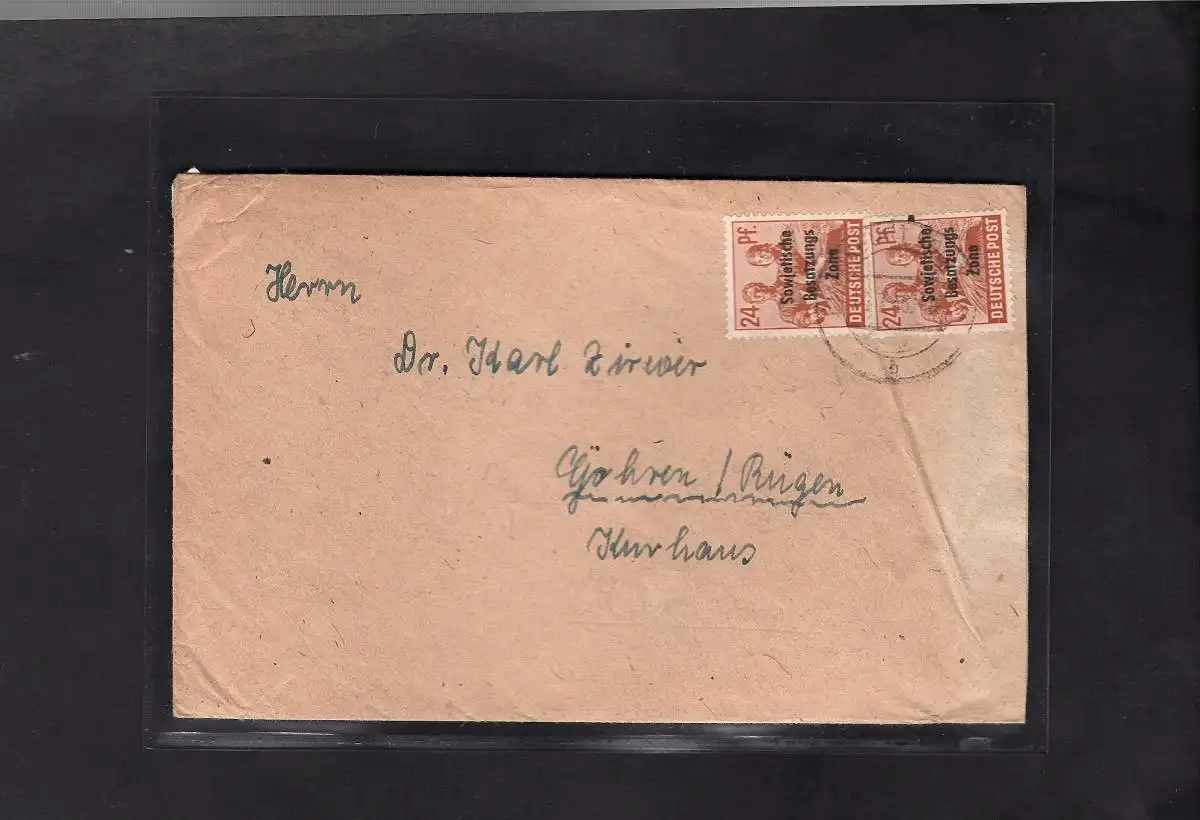 24 Pf.
Sowjetische
Besatzungs
Zone
DEUTSCHE POST
24 Pf.
Sowjetische
Besatzungs
Zone
DEUTSCHE POST
Herrn
Dr. Karl Zirwer
Göhren / Rügen
Kurhaus